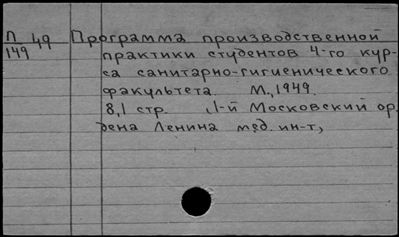 П 49 Программа производственной
149 практики студентов 4-го кур-
са санитарно-гигиенического
факультета. М., 1949.
8,1 стр. 1-й Московский ор
дена Ленина мед. ин-т,